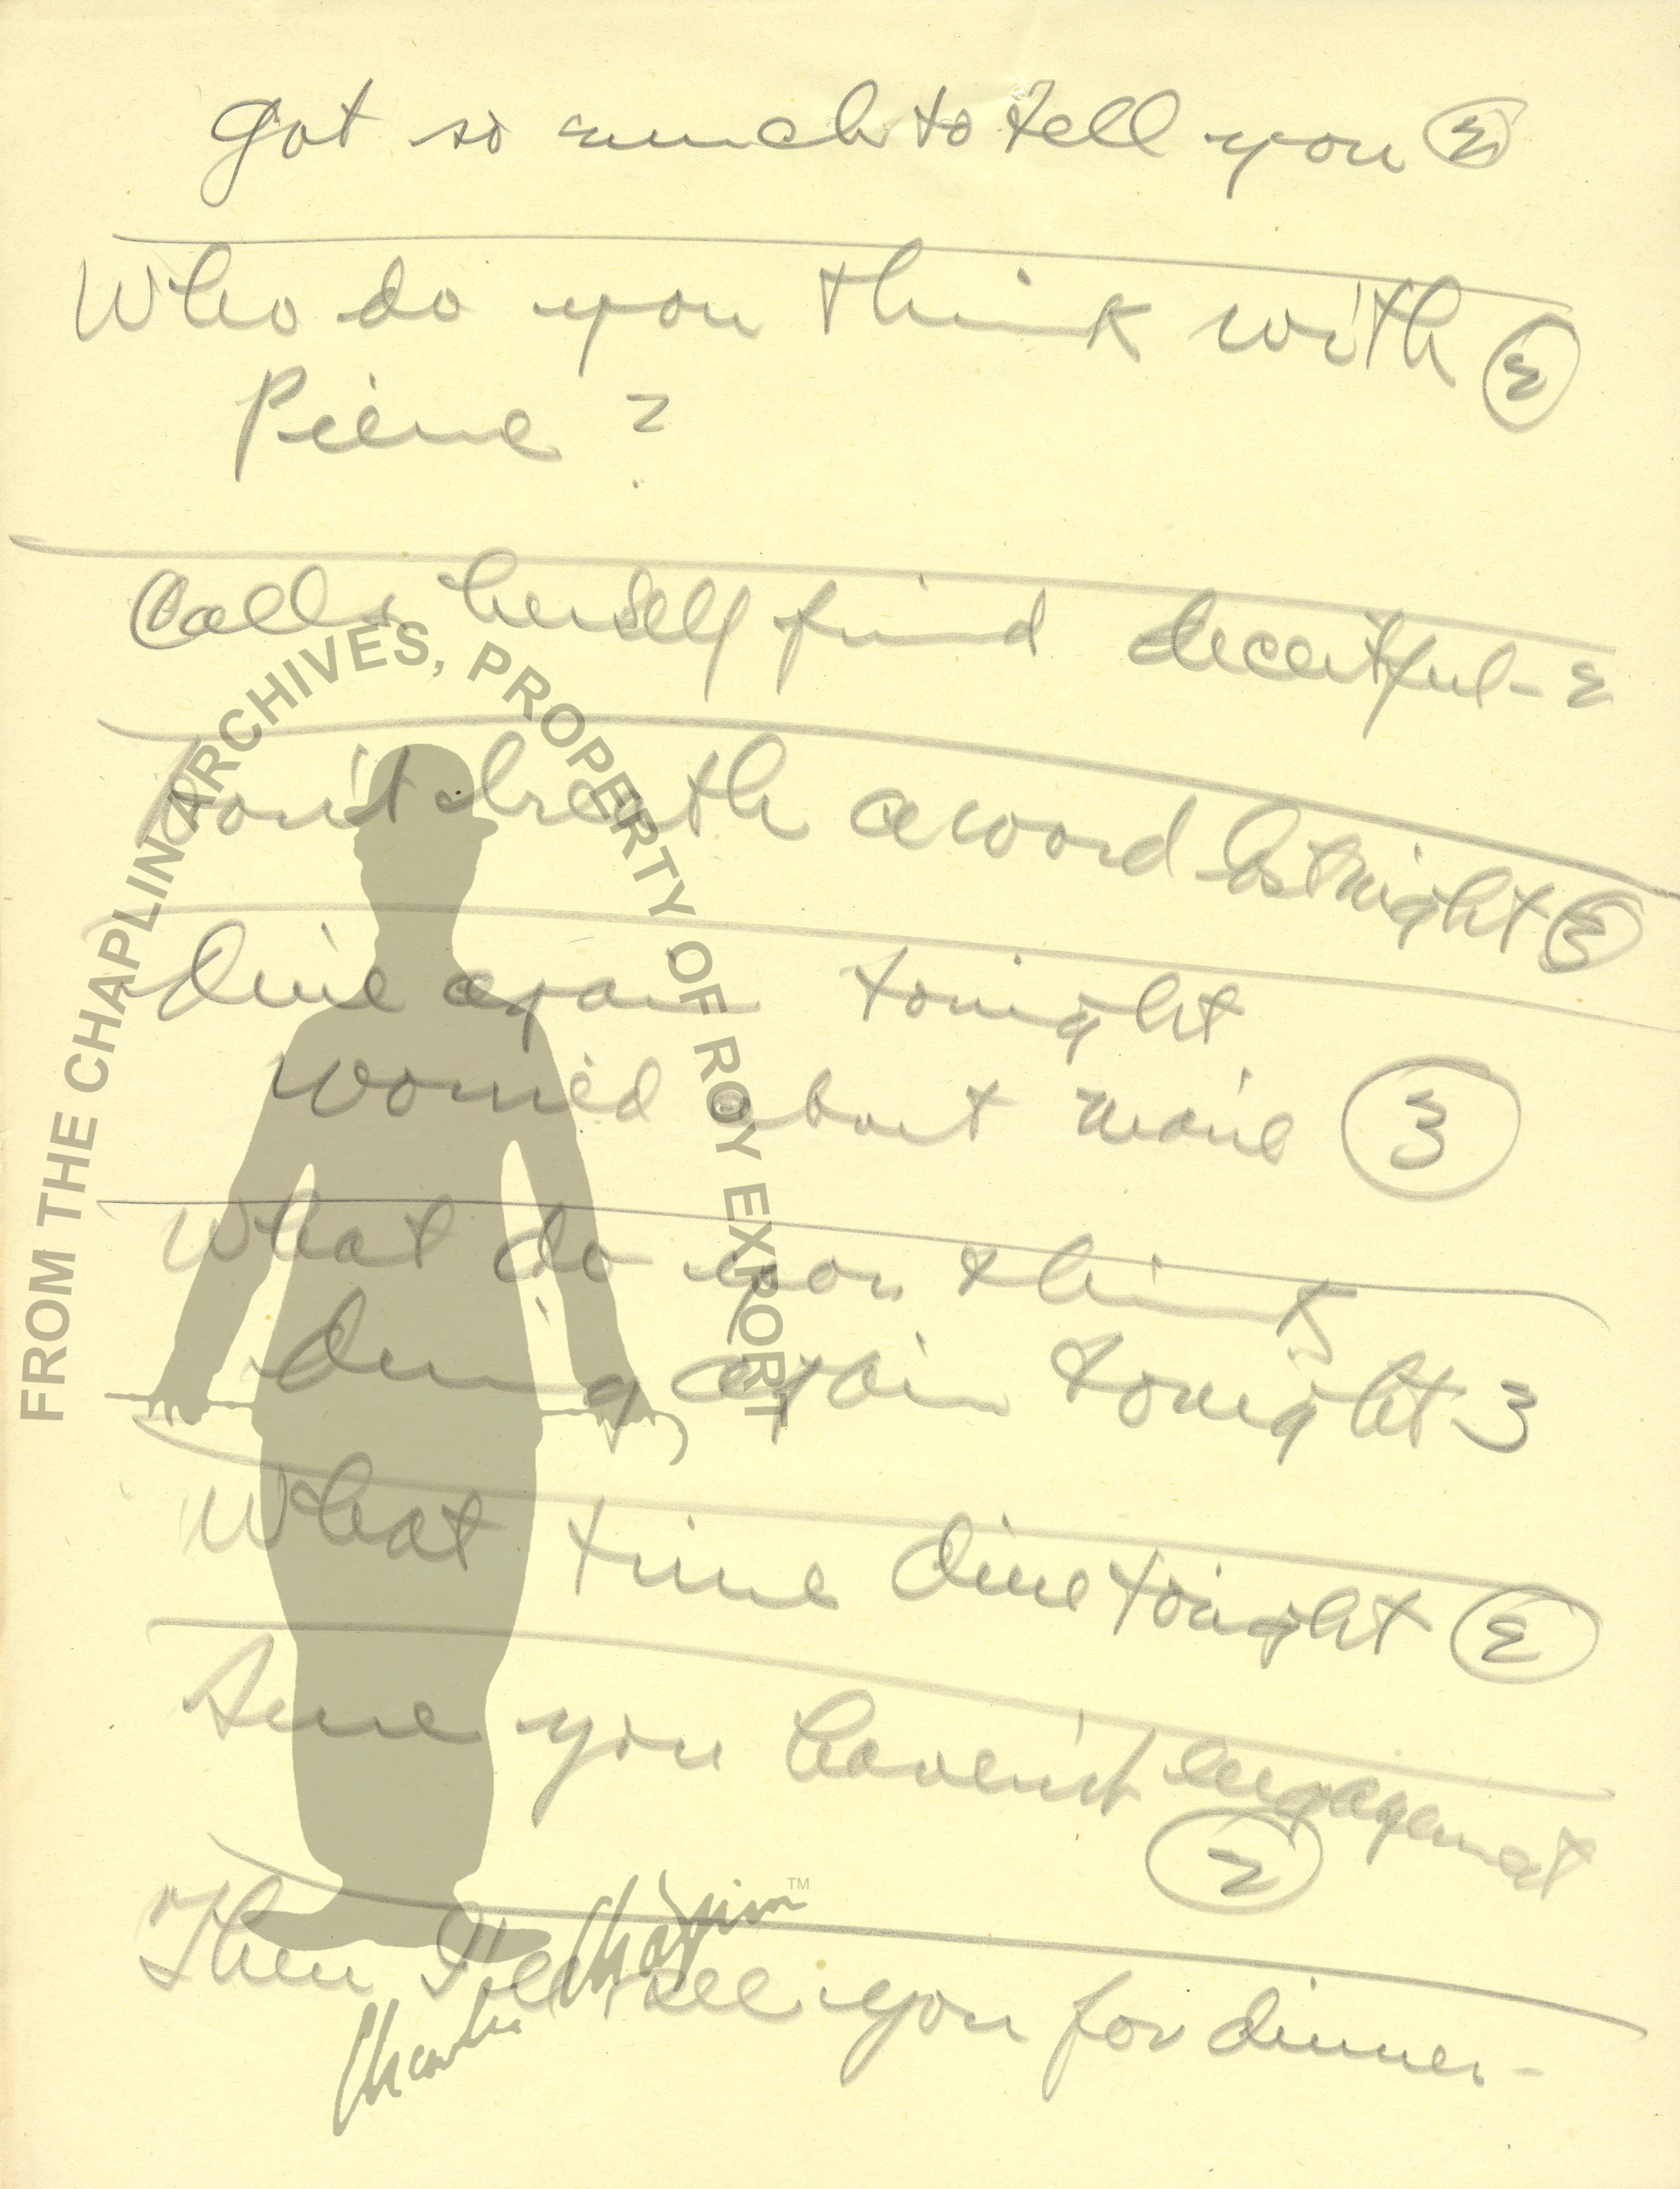 got so much to tell you 3
Who do you think with 3
Pierre ?
Calls herself friend deceitful - 3
Don't breath a word last night 3
dine again tonight
worried about Marie 3
What do you think
dining again tonight 3
What time dine tonight 3
Sure you haven't engagement
2
"Then I'll see you for dinner -
FROM THE CHAPLIN ARCHIVES, PROPERTY OF ROY EXPORT
Charlie Chaplin TM